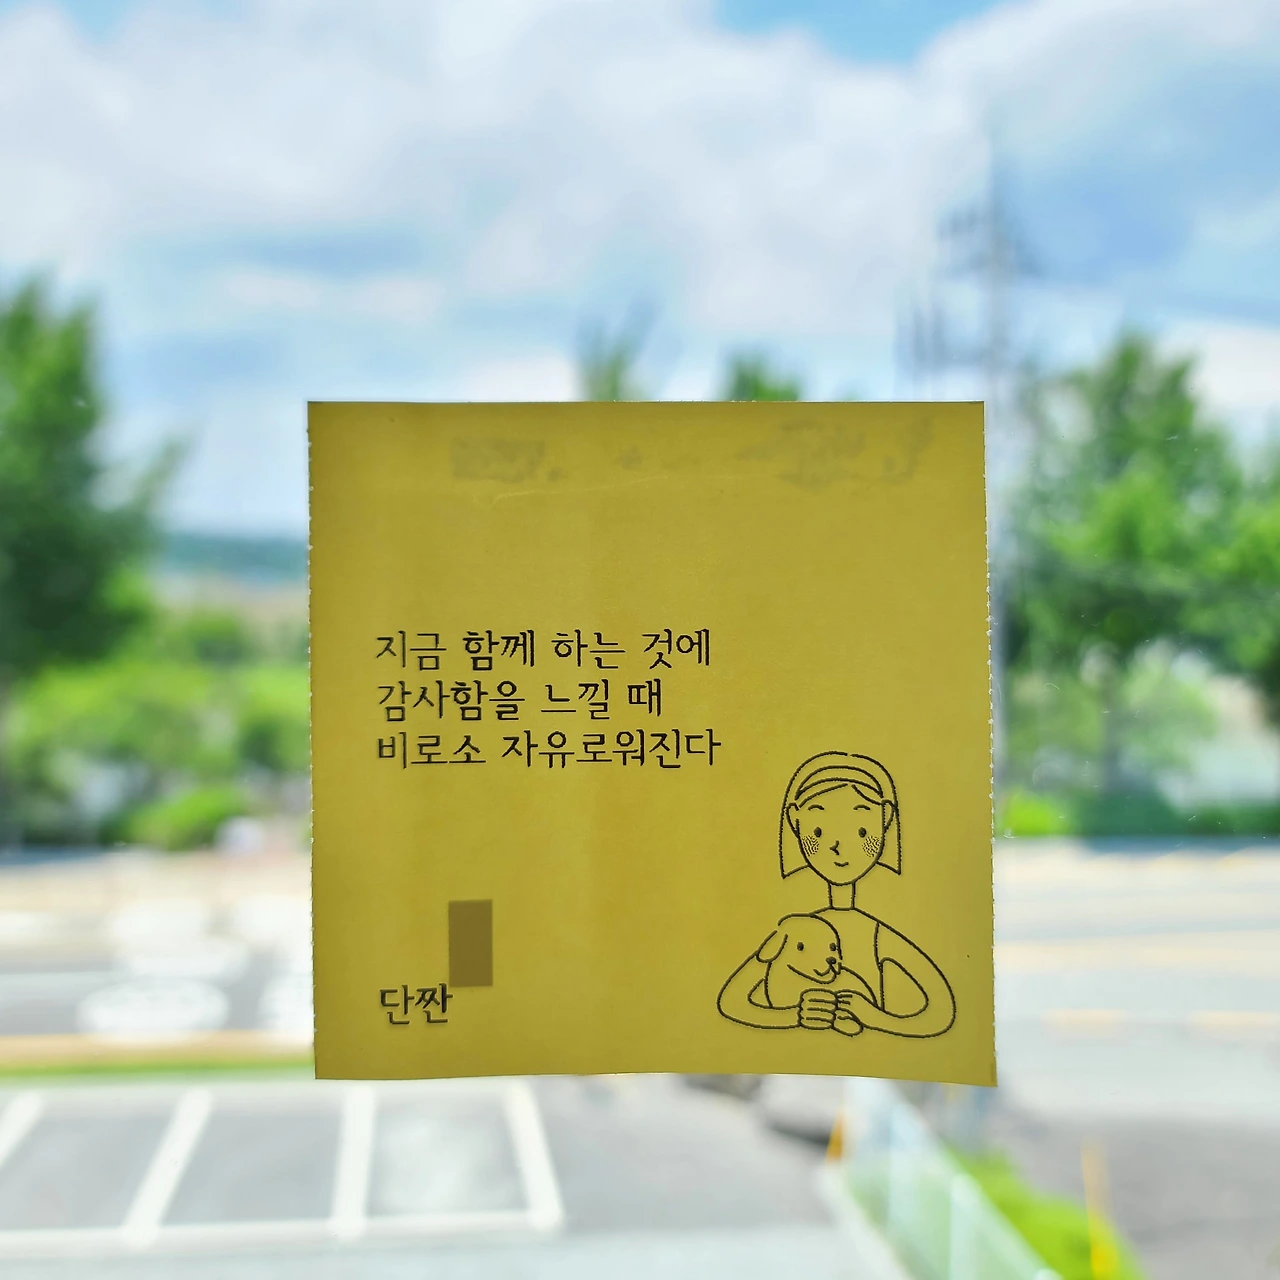 지금 함께 하는 것에
감사함을 느낄 때
비로소 자유로워진다
단짠